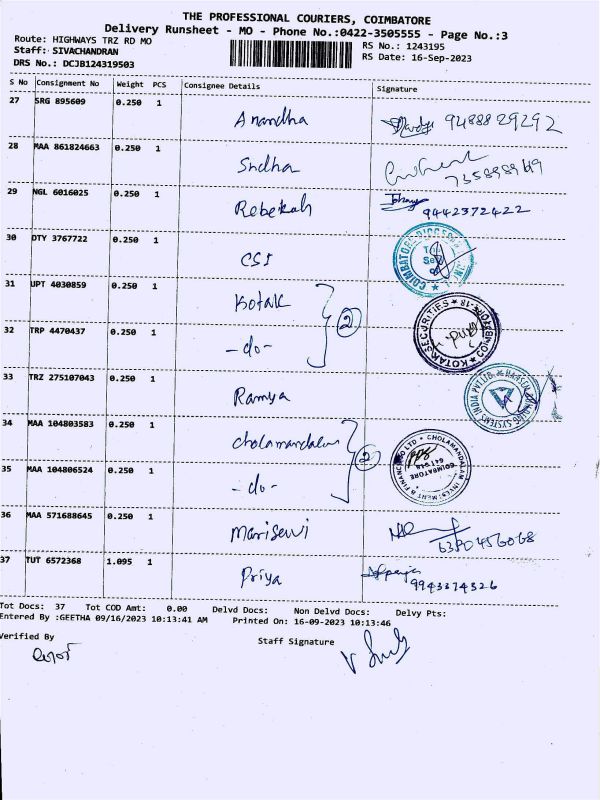 THE PROFESSIONAL COURIERS, COIMBATORE
Delivery Runsheet - MO - Phone No.:0422-3505555 - Page No.:3
Route: HIGHWAYS TRZ RD MO
RS No.: 1243195
Staff: SIVACHANDRAN
RS Date: 16-Sep-2023
DRS No.: DCJB124319503
S No Consignment No Weight PCS Consignee Details Signature
27 SRG 895609 0.250 1
Anandha 9488829292
28 MAA 861824663 0.250 1
Sudha
29 NGL 6016025 0.250 1
Rebekah 9442372422
30 DTY 3767722 0.250 1
CSI
31 UPT 4030859 0.250 1
Kotak
2
KOTAK SECURITIES
32 TRP 4470437 0.250 1
-do-
33 TRZ 275107043 0.250 1
Ramya
34 MAA 104803583 0.250 1
Cholamandalam
2
CHOLAMANDALAM INVESTMENT & FINANCE CO LTD
COIMBATORE
35 MAA 104806524 0.250 1
-do-
36 MAA 571688645 0.250 1
Mariselvi 6380456068
37 TUT 6572368 1.095 1
Priya 9943374526
Tot Docs: 37 Tot COD Amt: 0.00 Delvd Docs: Non Delvd Docs: Delvy Pts:
Entered By :GEETHA 09/16/2023 10:13:41 AM Printed On: 16-09-2023 10:13:46
Verified By
Staff Signature